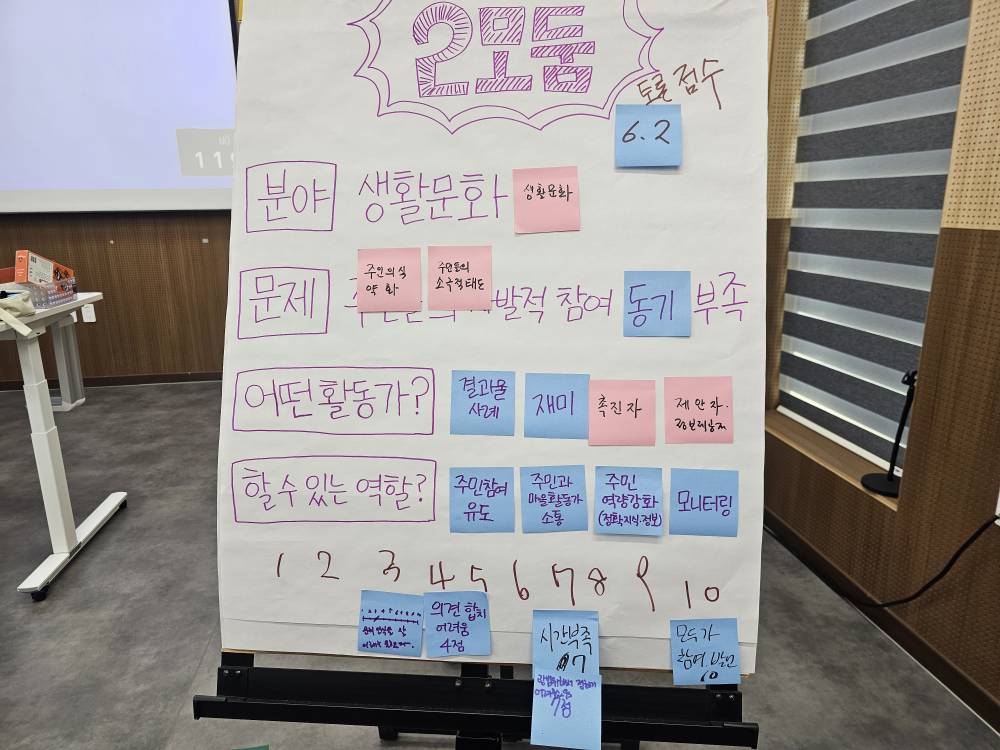 2모둠
토론 점수
6.2
분야 생활문화 생활문화
주민의식
약화
주민들의
소극적태도
문제 발적 참여 동기 부족
어떤 활동가?
결과물
사례
재미
촉진자
제안자.
할 수 있는 역할?
주민참여
유도
주민과
마을활동가
소통
주민
역량강화
(정확지식.정보)
모니터링
1 2 3 4 5 6 7 8 9 10
의견 합치
어려움
4점
시간부족
7
어려움
7점
모두가
참여.발언
10